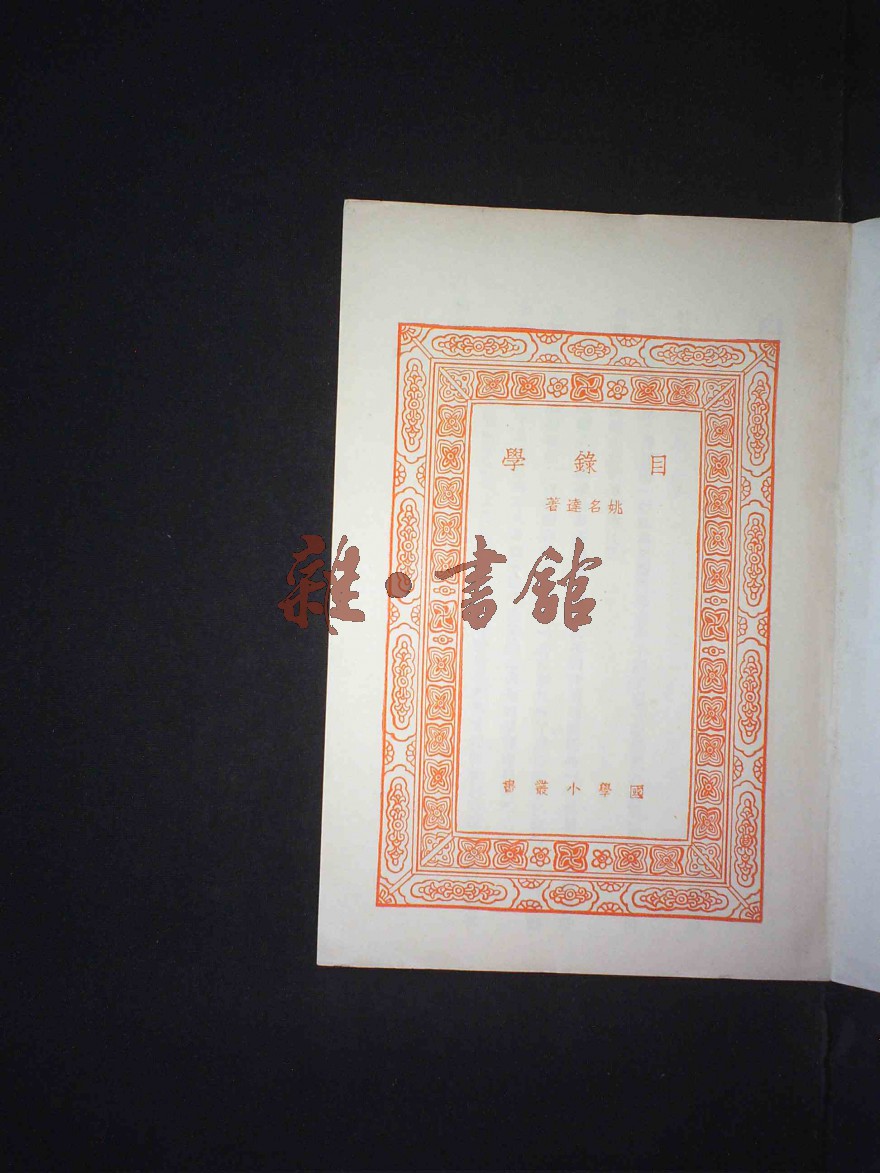 目錄學
姚名達著
雜·書館
國學小叢書